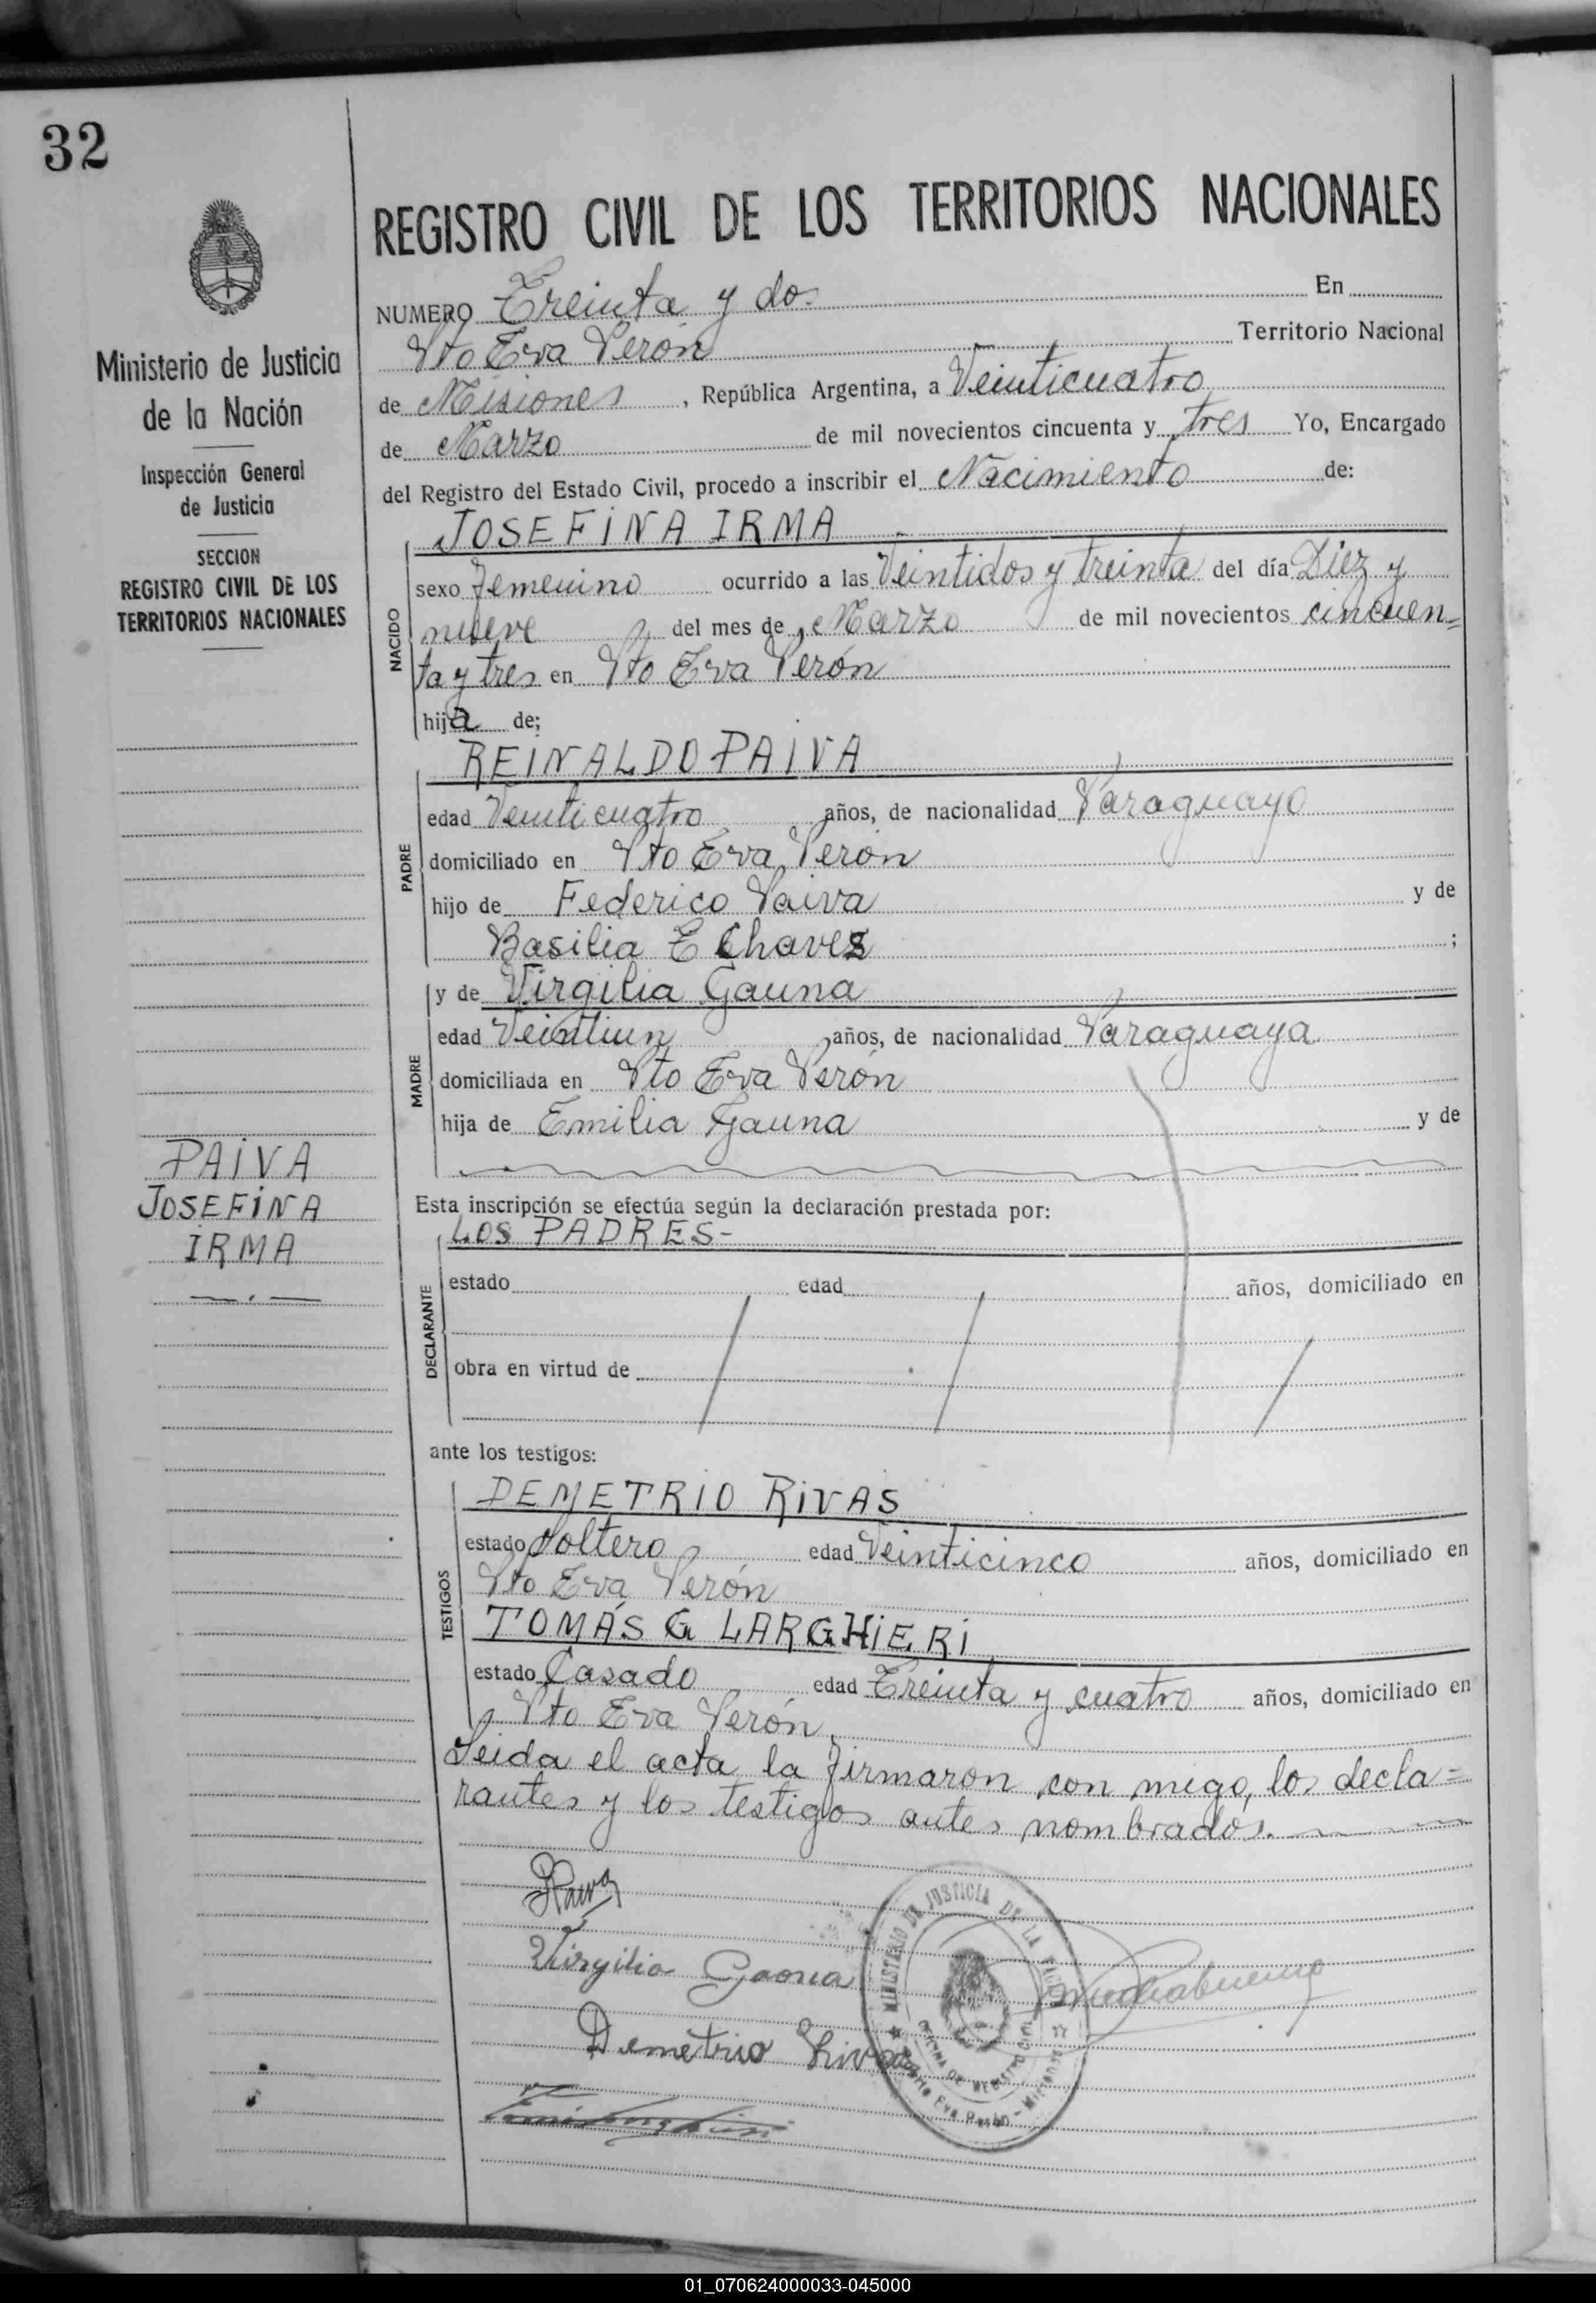 32
Ministerio de Justicia
de la Nación
Inspección General
de Justicia
SECCION
REGISTRO CIVIL DE LOS
TERRITORIOS NACIONALES
PAIVA
JOSEFINA
IRMA
REGISTRO CIVIL DE LOS TERRITORIOS NACIONALES
NUMERO Treinta y dos En
Pto Eva Perón Territorio Nacional
de Misiones , República Argentina, a Veinticuatro
de Marzo de mil novecientos cincuenta y tres Yo, Encargado
del Registro del Estado Civil, procedo a inscribir el Nacimiento de:
JOSEFINA IRMA
NACIDO
sexo Femenino ocurrido a las Veintidos y treinta del día Diez y
nueve del mes de Marzo de mil novecientos cincuen=
ta y tres en Pto Eva Perón
hija de;
REINALDO PAIVA
PADRE
edad Veinticuatro años, de nacionalidad Paraguayo
domiciliado en Pto Eva Perón
hijo de Federico Paiva y de
Basilia E Chavez ;
y de Virgilia Gauna
MADRE
edad Veintiun años, de nacionalidad Paraguaya
domiciliada en Pto Eva Perón
hija de Emilia Gauna y de
Esta inscripción se efectúa según la declaración prestada por:
LOS PADRES-
DECLARANTE
estado edad años, domiciliado en
obra en virtud de
ante los testigos:
DEMETRIO RIVAS
TESTIGOS
estado Soltero edad Veinticinco años, domiciliado en
Pto Eva Perón
TOMÁS G LARGHIERI
estado Casado edad Treinta y cuatro años, domiciliado en
Pto Eva Perón
Leida el acta la firmaron con migo, los decla=
rantes y los testigos antes nombrados.
Paiva
Virgilia Gaona
Demetrio Rivas
MINISTERIO DE JUSTICIA DE LA NACION
OFICINA DE REGISTRO CIVIL
Puerto Eva Perón - Misiones
01_070624000033-045000